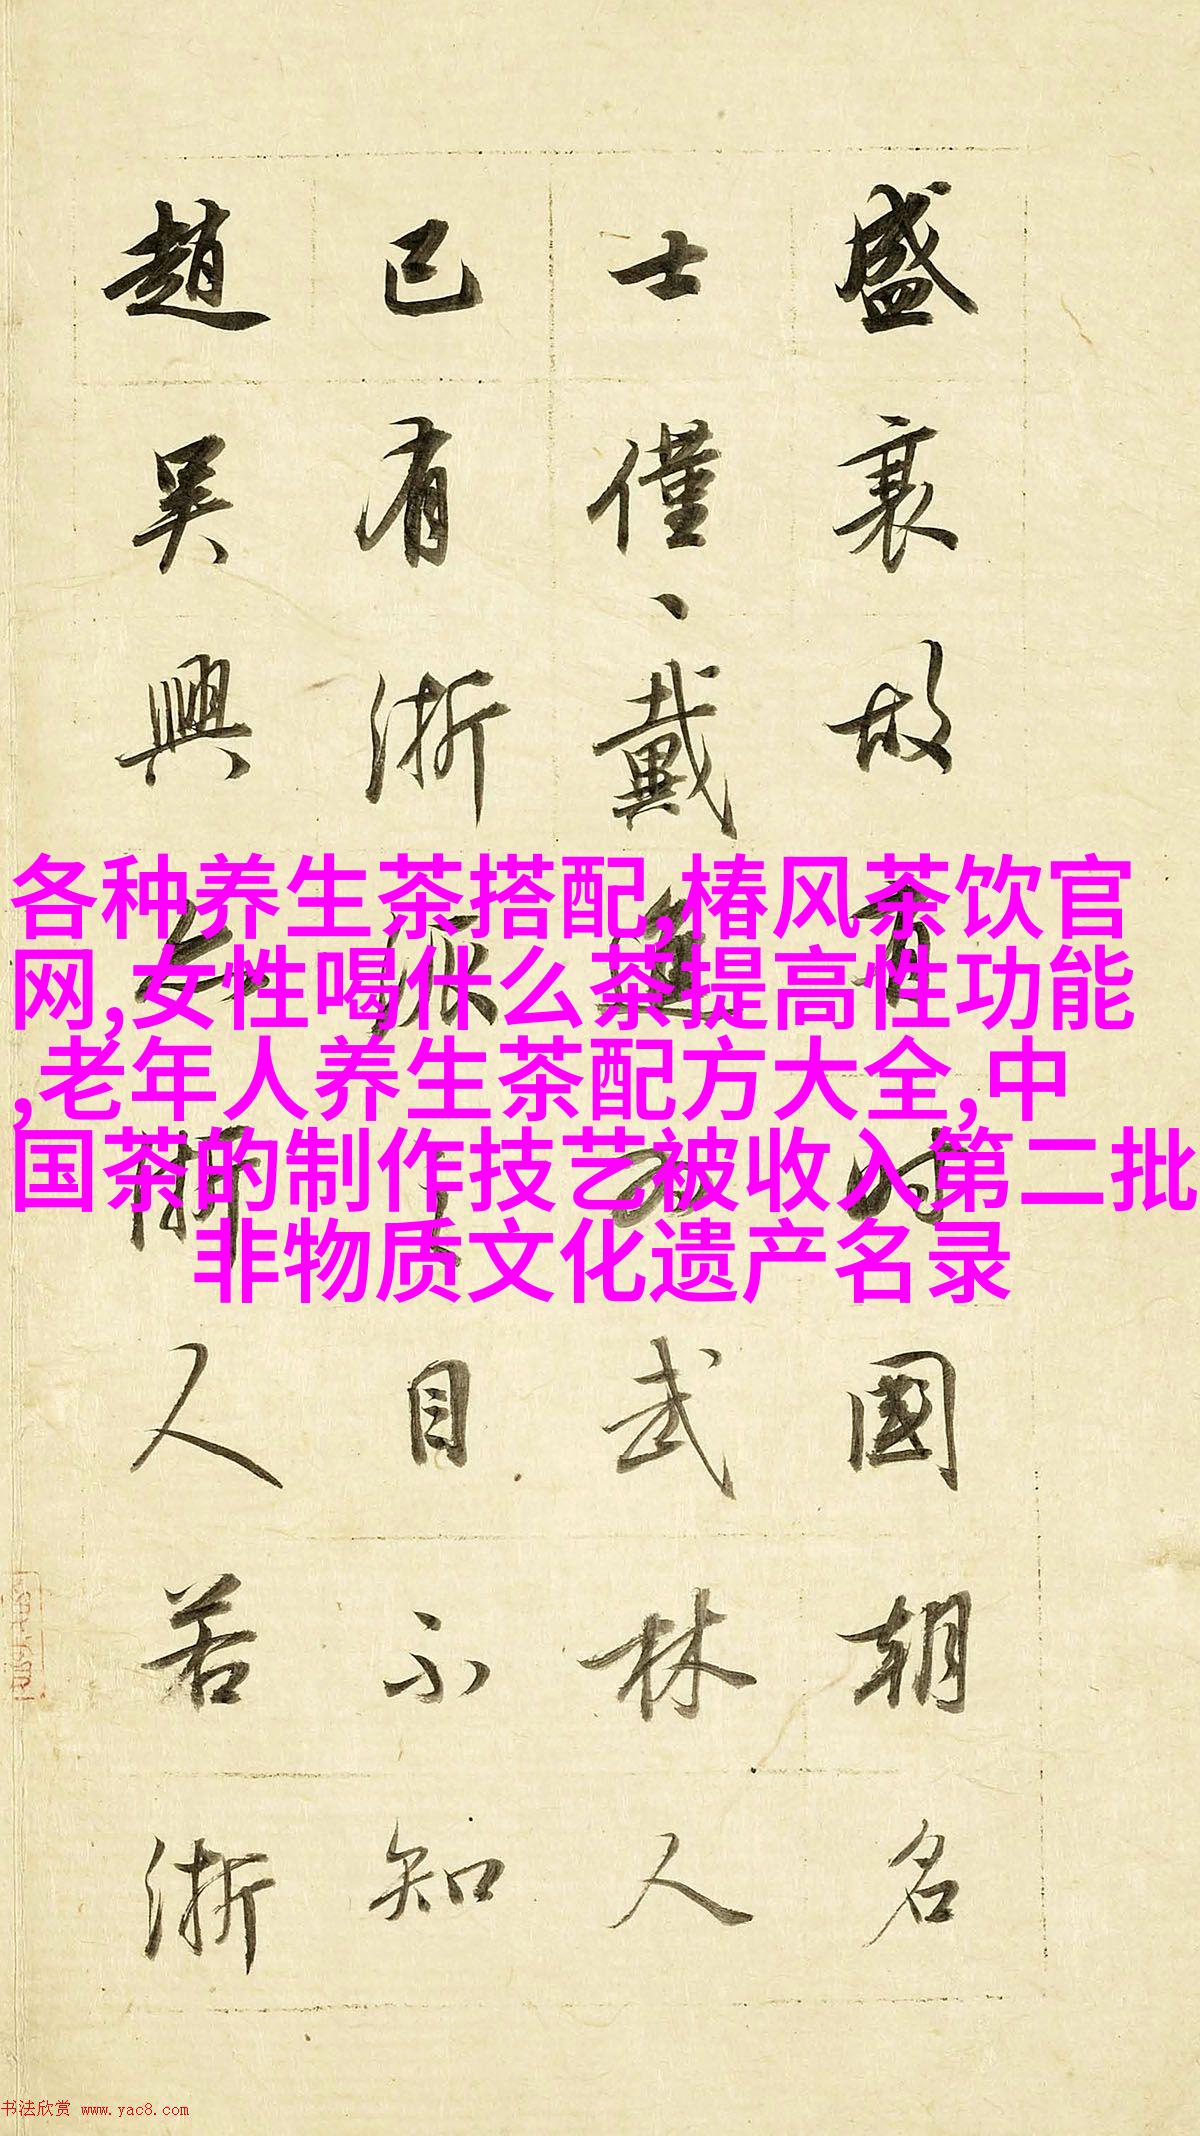 盛衰故有時國朝名
士僅、戴進為武林人
已有浙派之目不知
趙吴興人若浙
各种养生茶搭配,椿风茶饮官
网,女性喝什么茶提高性功能
,老年人养生茶配方大全,中
国茶的制作技艺被收入第二批
非物质文化遗产名录
书法欣赏 www.yac8.com